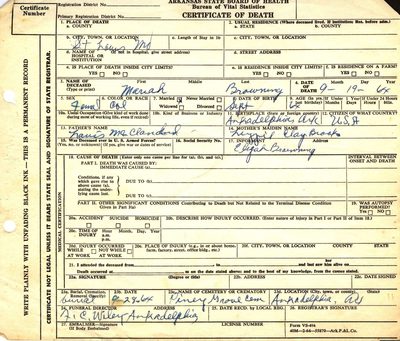 Certificate Number
ARKANSAS STATE BOARD OF HEALTH
Bureau of Vital Statistics
Registration District No.
CERTIFICATE OF DEATH
Primary Registration District No.
1. PLACE OF DEATH
a. COUNTY
2. USUAL RESIDENCE (Where deceased lived. If institution: Res. before adm.)
a. STATE
b. COUNTY
b. CITY, TOWN, OR LOCATION
c. Length of Stay in 1b
c. CITY, TOWN, OR LOCATION
St Louis Mo
d. NAME OF (If not in hospital, give street address)
HOSPITAL OR
INSTITUTION
d. STREET ADDRESS
e. IS PLACE OF DEATH INSIDE CITY LIMITS?
YES NO
e. IS RESIDENCE INSIDE CITY LIMITS?
YES NO
f. IS RESIDENCE ON A FARM?
YES NO
3. NAME OF DECEASED
First
Middle
Last
4. DATE OF DEATH
Month
Day
Year
Mariah Browning 9-19-64
5. SEX
6. COLOR OR RACE
7. Married Never Married
Widowed Divorced
8. DATE OF BIRTH
Fem Col Sept
10a. Usual Occupation (Give kind of work done during most of working life, even if retired)
10b. Kind of Business or Industry
11. BIRTHPLACE (State or foreign country)
12. CITIZEN OF WHAT COUNTRY?
Arkadelphia Ark U.S.A
13. FATHER'S NAME
14. MOTHER'S MAIDEN NAME
15. Was Deceased Ever in U. S. Armed Forces?
16. Social Security No.
17. INFORMANT
Address
Elijah Browning
18. CAUSE OF DEATH (Enter only one cause per line for (a), (b), and (c).)
PART I. DEATH WAS CAUSED BY:
IMMEDIATE CAUSE (a)
INTERVAL BETWEEN ONSET AND DEATH
Conditions, if any, which gave rise to above cause (a), stating the underlying cause last.
DUE TO (b)
DUE TO (c)
PART II. OTHER SIGNIFICANT CONDITIONS Contributing to Death but Not Related to the Terminal Disease Condition Given in Part I(a)
19. WAS AUTOPSY PERFORMED?
YES NO
20a. ACCIDENT SUICIDE HOMICIDE
20b. DESCRIBE HOW INJURY OCCURRED. (Enter nature of injury in Part I or Part II of Item 18.)
20c. TIME OF INJURY
Hour Month, Day, Year
a.m.
p.m.
20d. INJURY OCCURRED
WHILE AT WORK
NOT WHILE AT WORK
20e. PLACE OF INJURY (e.g., in or about home, farm, factory, street, office bldg., etc.)
20f. CITY, TOWN, OR LOCATION
COUNTY
STATE
21. I attended the deceased from
and last saw him alive on
Death occurred at
m. on the date stated above; and to the best of my knowledge, from the causes stated.
22a. SIGNATURE
(Degree or title)
22b. ADDRESS
22c. DATE SIGNED
23a. Burial, Cremation, Removal (Specify)
23b. DATE
23c. NAME OF CEMETERY OR CREMATORY
23d. LOCATION (City, town, or county)
(State)
burial 9-23-64 Piney Grove Cem Arkadelphia, Ark
24. FUNERAL DIRECTOR
ADDRESS
25. DATE RECD. BY LOCAL REG.
26. REGISTRAR'S SIGNATURE
Arkadelphia
27. EMBALMER—Signature (If Body Embalmed)
LICENSE NUMBER
WRITE PLAINLY WITH UNFADING BLACK INK — THIS IS A PERMANENT RECORD
CERTIFICATE NOT LEGAL UNLESS IT BEARS STATE SEAL AND SIGNATURE OF STATE REGISTRAR.
MEDICAL CERTIFICATION